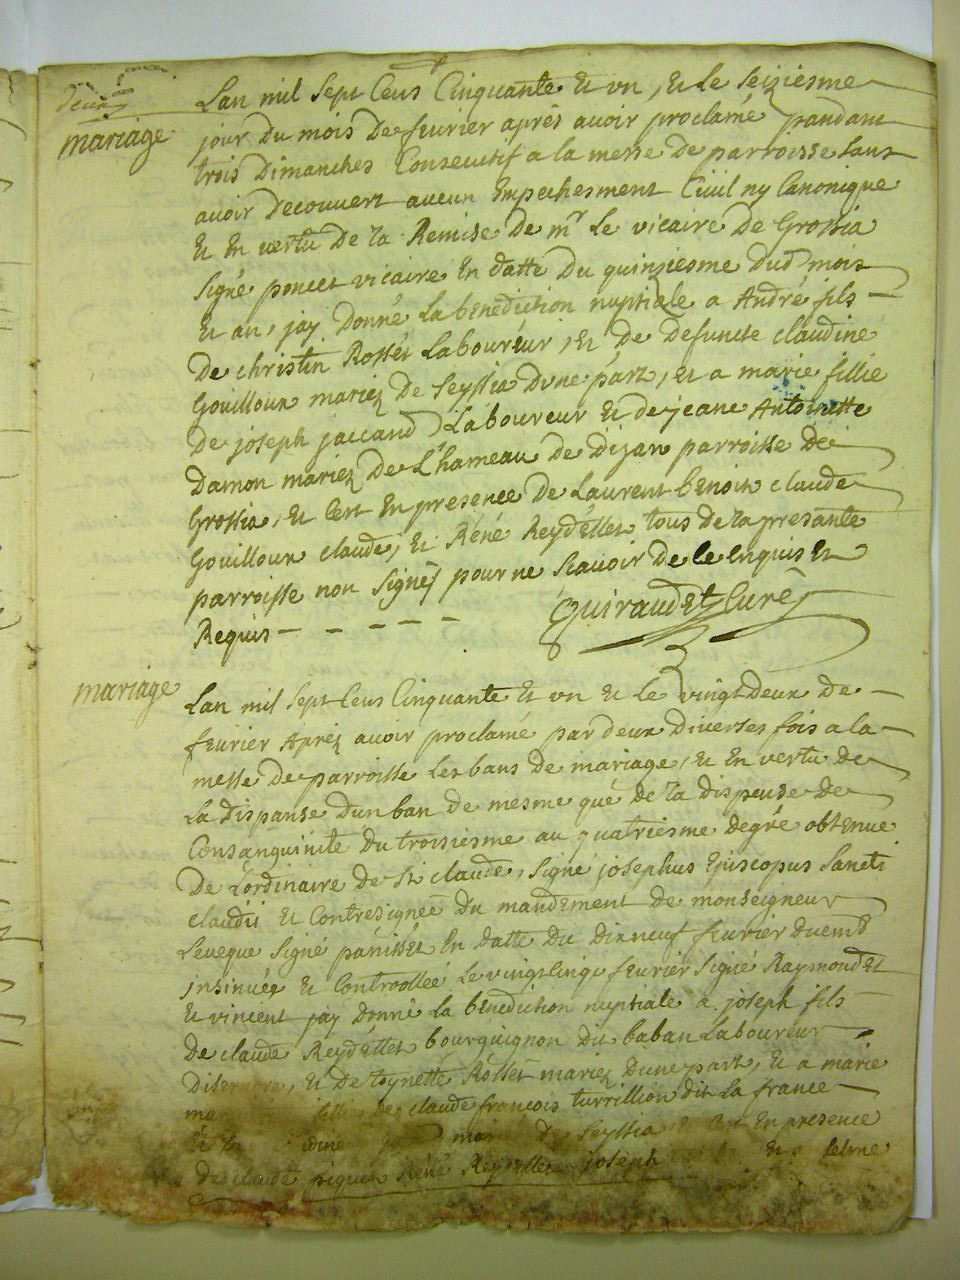 deux
mariage
Lan mil sept Cens Cinquante Et vn, Et Le Seiziesme
jour Du mois De fevrier aprés avoir proclamé pandant
trois Dimanches Consecutif a la messe De parroisse Sans
avoir Decouvert aucun Empechesment Civil ny Canonique
Et En vertu De La Remise De mr Le vicaire De Grossia
Signé poncet vicaire En datte Du quinziesme dud mois
Et an, jay Donné La benediction nuptiale a André fils
De christin Rosset Laboureur, Et De Defuncte claudine
Gouilloux mariez De Seyssia Dune part, Et a marie fillie
De joseph jaccand Laboureur Et de jeane Antoinette
Damon mariez De L'hameau De Dizan parroisse de
Grossia, Et Cest En presence De Laurent benoit claude
Gouilloux claude, Et Réné Reydellet tous De La presante
parroisse non Signés pour ne Scavoir De Ce Enquis Et
Requis - - - - -
Quiraudet Curé
mariage
Lan mil Sept Cens Cinquante Et vn Et Le vingt Deux de
fevrier Aprez avoir proclamé par deux Diverses fois a la
messe De parroisse Les bans de mariage, Et En vertu de
La Dispanse Dun ban De mesme que de La dispense de
Consanguinité Du troisiesme au quatriesme degré obtenue
De Lordinaire de St claude, Signé josephus Episcopus Sancti
claudii Et Contresignée Du mandement De monseigneur
Leveque Signé panisset En datte Du Dixneuf fevrier
insinuée Et Controollée Le vingt Cinq fevrier Signé Raymondet
Et vincent jay Donné La bénédiction nuptiale a joseph fils
De claude Reydellet bourguignon dit baban Laboureur
Et De toynette Rosset mariez Dune part, Et a marie
De claude françois turrillion dit La france
De Seyssia Et Cest En presence
De claude Réné Reydellet joseph Et